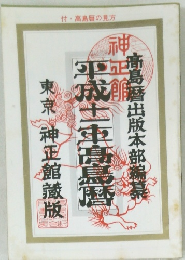 付・高島暦の見方
神正館
高島暦出版本部編纂
平成十二年高島暦
東京 神正館蔵版